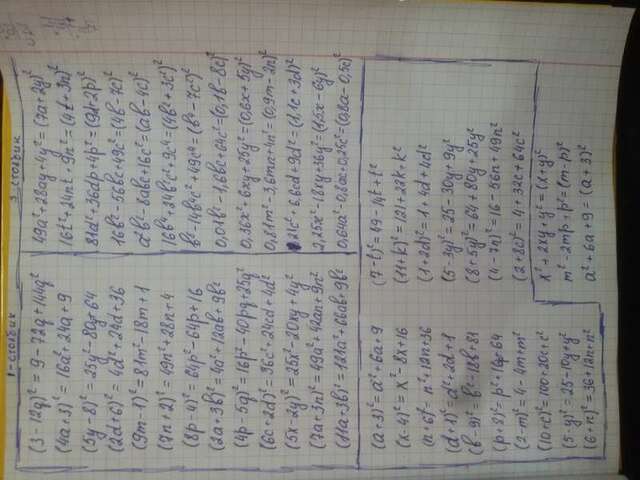 1-столбик
(3-12q)² = 9-72q+144q²
(4a+3)² = 16a²+24a+9
(5y-8)² = 25y²-80y+64
(2d+6)² = 4d²+24d+36
(9m-1)² = 81m²-18m+1
(7n+2)² = 49n²+28n+4
(8p-4)² = 64p²-64p+16
(2a+3b)² = 4a²+12ab+9b²
(4p-5q)² = 16p²-40pq+25q²
(6c+2d)² = 36c²+24cd+4d²
(5x-2y)² = 25x²-20xy+4y²
(7a+3n)² = 49a²+42an+9n²
(11a+3b)² = 121a²+66ab+9b²
3 столбик
49a²+28ay+4y² = (7a+2y)²
16t²+24nt+9n² = (4t+3n)²
81d²+36dp+4p² = (9d+2p)²
16b²-56bc+49c² = (4b-7c)²
a²b²-8abc+16c² = (ab-4c)²
16b⁴+24b²c²+9c⁴ = (4b²+3c²)²
0,01b²-1,6bc+64c² = (0,1b-8c)²
0,36x²+6xy+25y² = (0,6x+5y)²
0,81m²-3,6mn+4n² = (0,9m-2n)²
21c²+6,6cd+9d² = (1,1c+3d)²
2,25x²-18xy+36y² = (1,5x-6y)²
0,64a²-0,8ac+0,25c² = (0,8a-0,5c)²
(a+3)² = a²+6a+9
(x-4)² = x²-8x+16
(n+6)² = n²+12n+36
(d+1)² = d²+2d+1
(b-9)² = b²-18b+81
(p+8)² = p²+16p+64
(2-m)² = 4-4m+m²
(10+c)² = 100+20c+c²
(5-y)² = 25-10y+y²
(6+n)² = 36+12n+n²
(7-t)² = 49-14t+t²
(11+k)² = 121+22k+k²
(1+2d)² = 1+4d+4d²
(5-3y)² = 25-30y+9y²
(8+5y)² = 64+80y+25y²
(4-7n)² = 16-56n+49n²
(2+8c)² = 4+32c+64c²
x²+2xy+y² = (x+y)²
m²-2mp+p² = (m-p)²
a²+6a+9 = (a+3)²